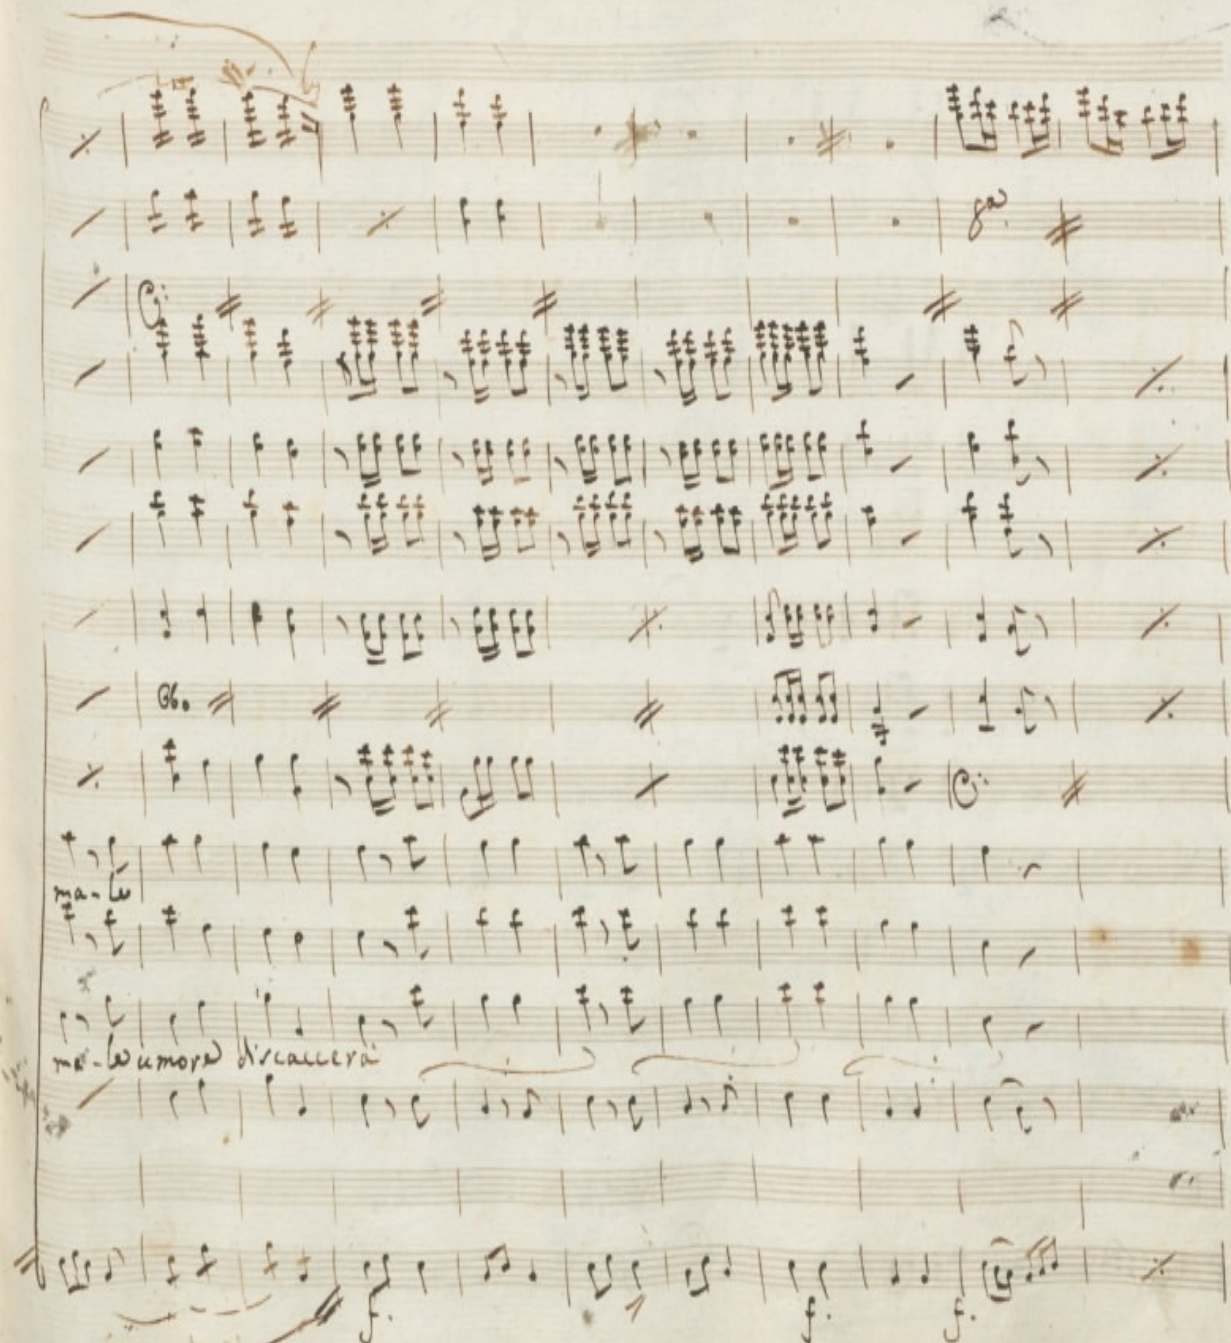 8a
ma-le
ma-le umore discaccerà
f. f. f.